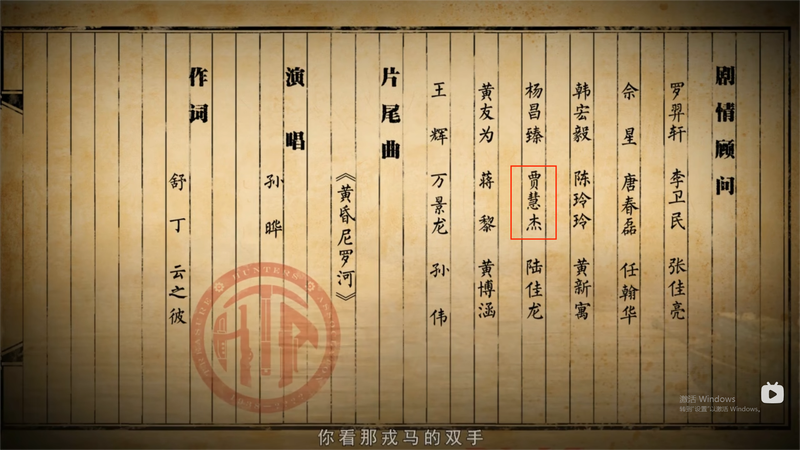 剧情顾问
罗羿轩 李卫民 张佳亮
佘星 唐春磊 任翰华
韩宏毅 陈玲玲 黄新寓
杨昌臻 贾慧杰 陆佳龙
黄友为 蒋黎 黄博涵
王辉 万景龙 孙伟
片尾曲
《黄昏尼罗河》
演唱
孙晔
作词
舒丁 云之彼
HUNTERS
激活 Windows
转到"设置"以激活 Windows。
你看那戎马的双手